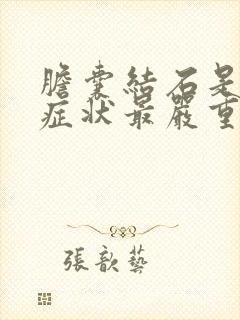 膽囊結石是
症狀最嚴重
張歆藝